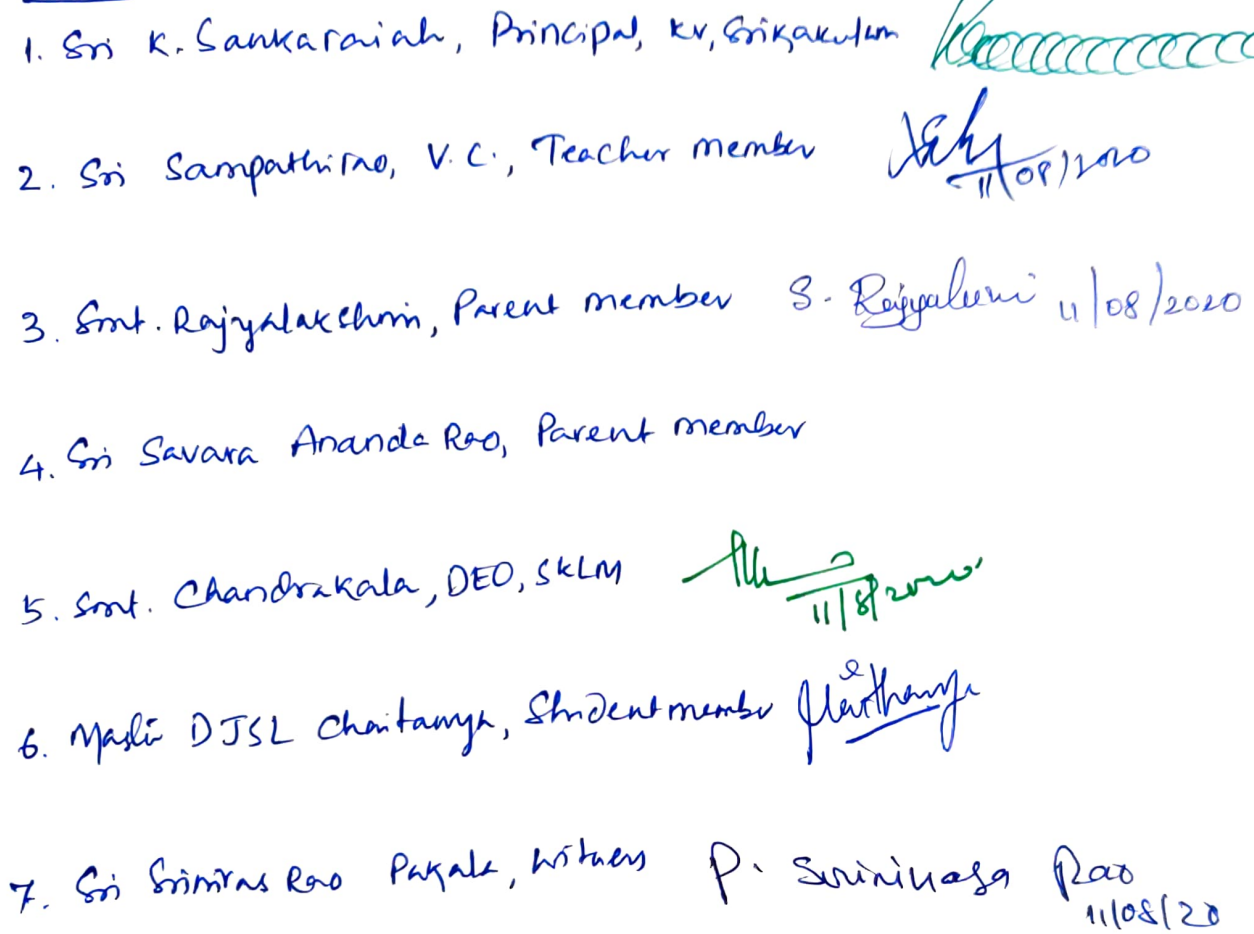 1. Sri K. Sankaraiah, Principal, KV, Srikakulam
2. Sri Sampathirao, V.C., Teacher member 11/08/2020
3. Smt. Rajyalakshmi, Parent member S. Rajyalaxmi 11/08/2020
4. Sri Savara Ananda Rao, Parent member
5. Smt. Chandrakala, DEO, SKLM 11/8/2020
6. DJSL Chaitanya, Student member
7. Sri Srinivas Rao Pakala, witness P. Srinivasa Rao
11/08/20